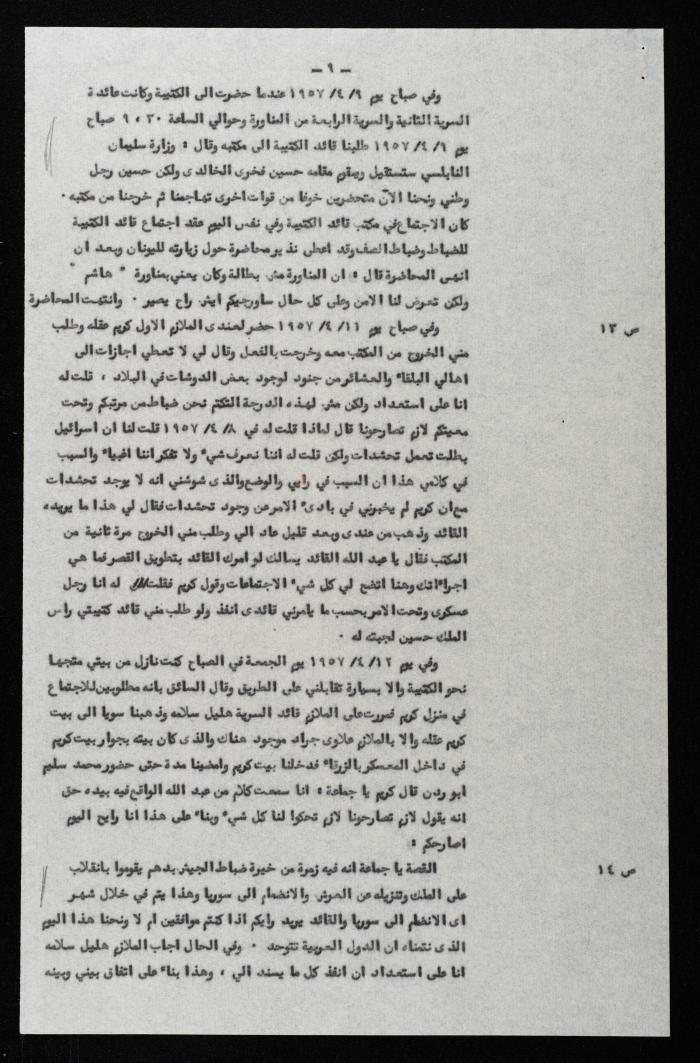 — ٩ —
وفي صباح يوم ٩/ ٤/ ١٩٥٧ عندما حضرت الى الكتيبة وكانت عائدة
السرية الثانية والسرية الرابعة من المناورة وحوالي الساعة ٣٠ ، ٩ صباح
يوم ٩/ ٤/ ١٩٥٧ طلبنا قائد الكتيبة الى مكتبه وقال : وزارة سليمان
النابلسي ستستقيل ويقوم مقامه حسين فخرى الخالدى ولكن حسين رجل
وطني ونحنا الآن متحضرين خوفا من قوات اخرى تهاجمنا ثم خرجنا من مكتبه ٠
كان الاجتماع في مكتب قائد الكتيبة وفي نفس اليوم عقد اجتماع قائد الكتيبة
للضباط وضباط الصف وقد اعطى نذير محاضرة حول زيارته لليونان وبعد ان
انهى المحاضرة قال : ان المناورة مش بطالة وكان يعني بمناورة " هاشم "
ولكن تعرض لنا الامن وعلى كل حال ساورجيكم ايش راح يصير ٠ وانتهت المحاضرة
ص ١٣
وفي صباح يوم ١١/ ٤/ ١٩٥٧ حضر لعندى الملازم الاول كريم عقله وطلب
مني الخروج من المكتب معه وخرجت بالفعل وقال لي لا تعطي اجازات الى
اهالي البلقاء والعشائر من جنود لوجود بعض الدوشات في البلاد ، قلت له
انا على استعداد ولكن مش لهذه الدرجة التكتم نحن ضباط من مرتبكم وتحت
معيتكم لازم تصارحونا قال لماذا قلت له في ٨/ ٤/ ١٩٥٧ قلت لنا ان اسرائيل
بطلت تعمل تحشدات ولكن قلت له اننا نعرف شيء ولا تفكر اننا اغبياء والسبب
في كلامي هذا ان السبب في رايي والوضع والذى شوشني انه لا يوجد تحشدات
مع ان كريم لم يخبرني في بادىء الامر عن وجود تحشدات فقال لي هذا ما يريده
القائد وذهب من عندى وبعد قليل عاد الي وطلب مني الخروج مرة ثانية من
المكتب فقال يا عبد الله القائد يسالك لو امرك القائد بتطويق القصر فما هي
اجراءاتك وهنا اتضح لي كل شيء الاجتماعات وقول كريم فقلت له انا رجل
عسكرى وتحت الامر بحسب ما يامرني قائدى انفذ ولو طلب مني قائد كتيبتي راس
الملك حسين لجبته له ٠
وفي يوم ١٢/ ٤/ ١٩٥٧ يوم الجمعة في الصباح كنت نازل من بيتي متجها
نحو الكتيبة والا بسيارة تقابلني على الطريق وقال السائق بانه مطلوبين للاجتماع
في منزل كريم فمررت على الملازم قائد السرية هليل سلامه وذهبنا سويا الى بيت
كريم عقله والا بالملازم علاوى جراد موجود هناك والذى كان بيته بجوار بيت كريم
في داخل المعسكر بالزرقاء فدخلنا بيت كريم وامضينا مدة حتى حضور محمد سليم
ابو ردن قال كريم يا جماعة : انا سمعت كلام من عبد الله الواقع فيه بيده حق
انه يقول لازم تصارحونا لازم تحكوا لنا كل شيء وبناء على هذا انا رايح اليوم
اصارحكم :
ص ١٤
القصة يا جماعة انه فيه زمرة من خيرة ضباط الجيش بدهم يقوموا بانقلاب
على الملك وتنزيله عن العرش والانضمام الى سوريا وهذا يتم في خلال شهر
اى الانضمام الى سوريا والقائد يريد رايكم اذا كنتم موافقين ام لا ونحنا هذا اليوم
الذى نتمناه ان الدول العربية تتوحد ٠ وفي الحال اجاب الملازم هليل سلامه
انا على استعداد ان انفذ كل ما يسند الي ، وهذا بناء على اتفاق بيني وبينه